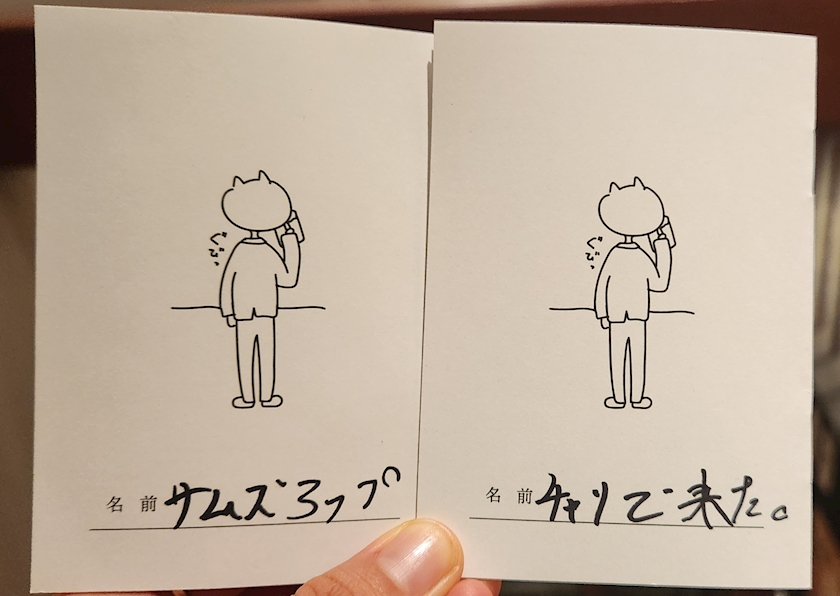 ぐびっ
名前 サムズろップ
ぐびっ
名前 チャリで来た。